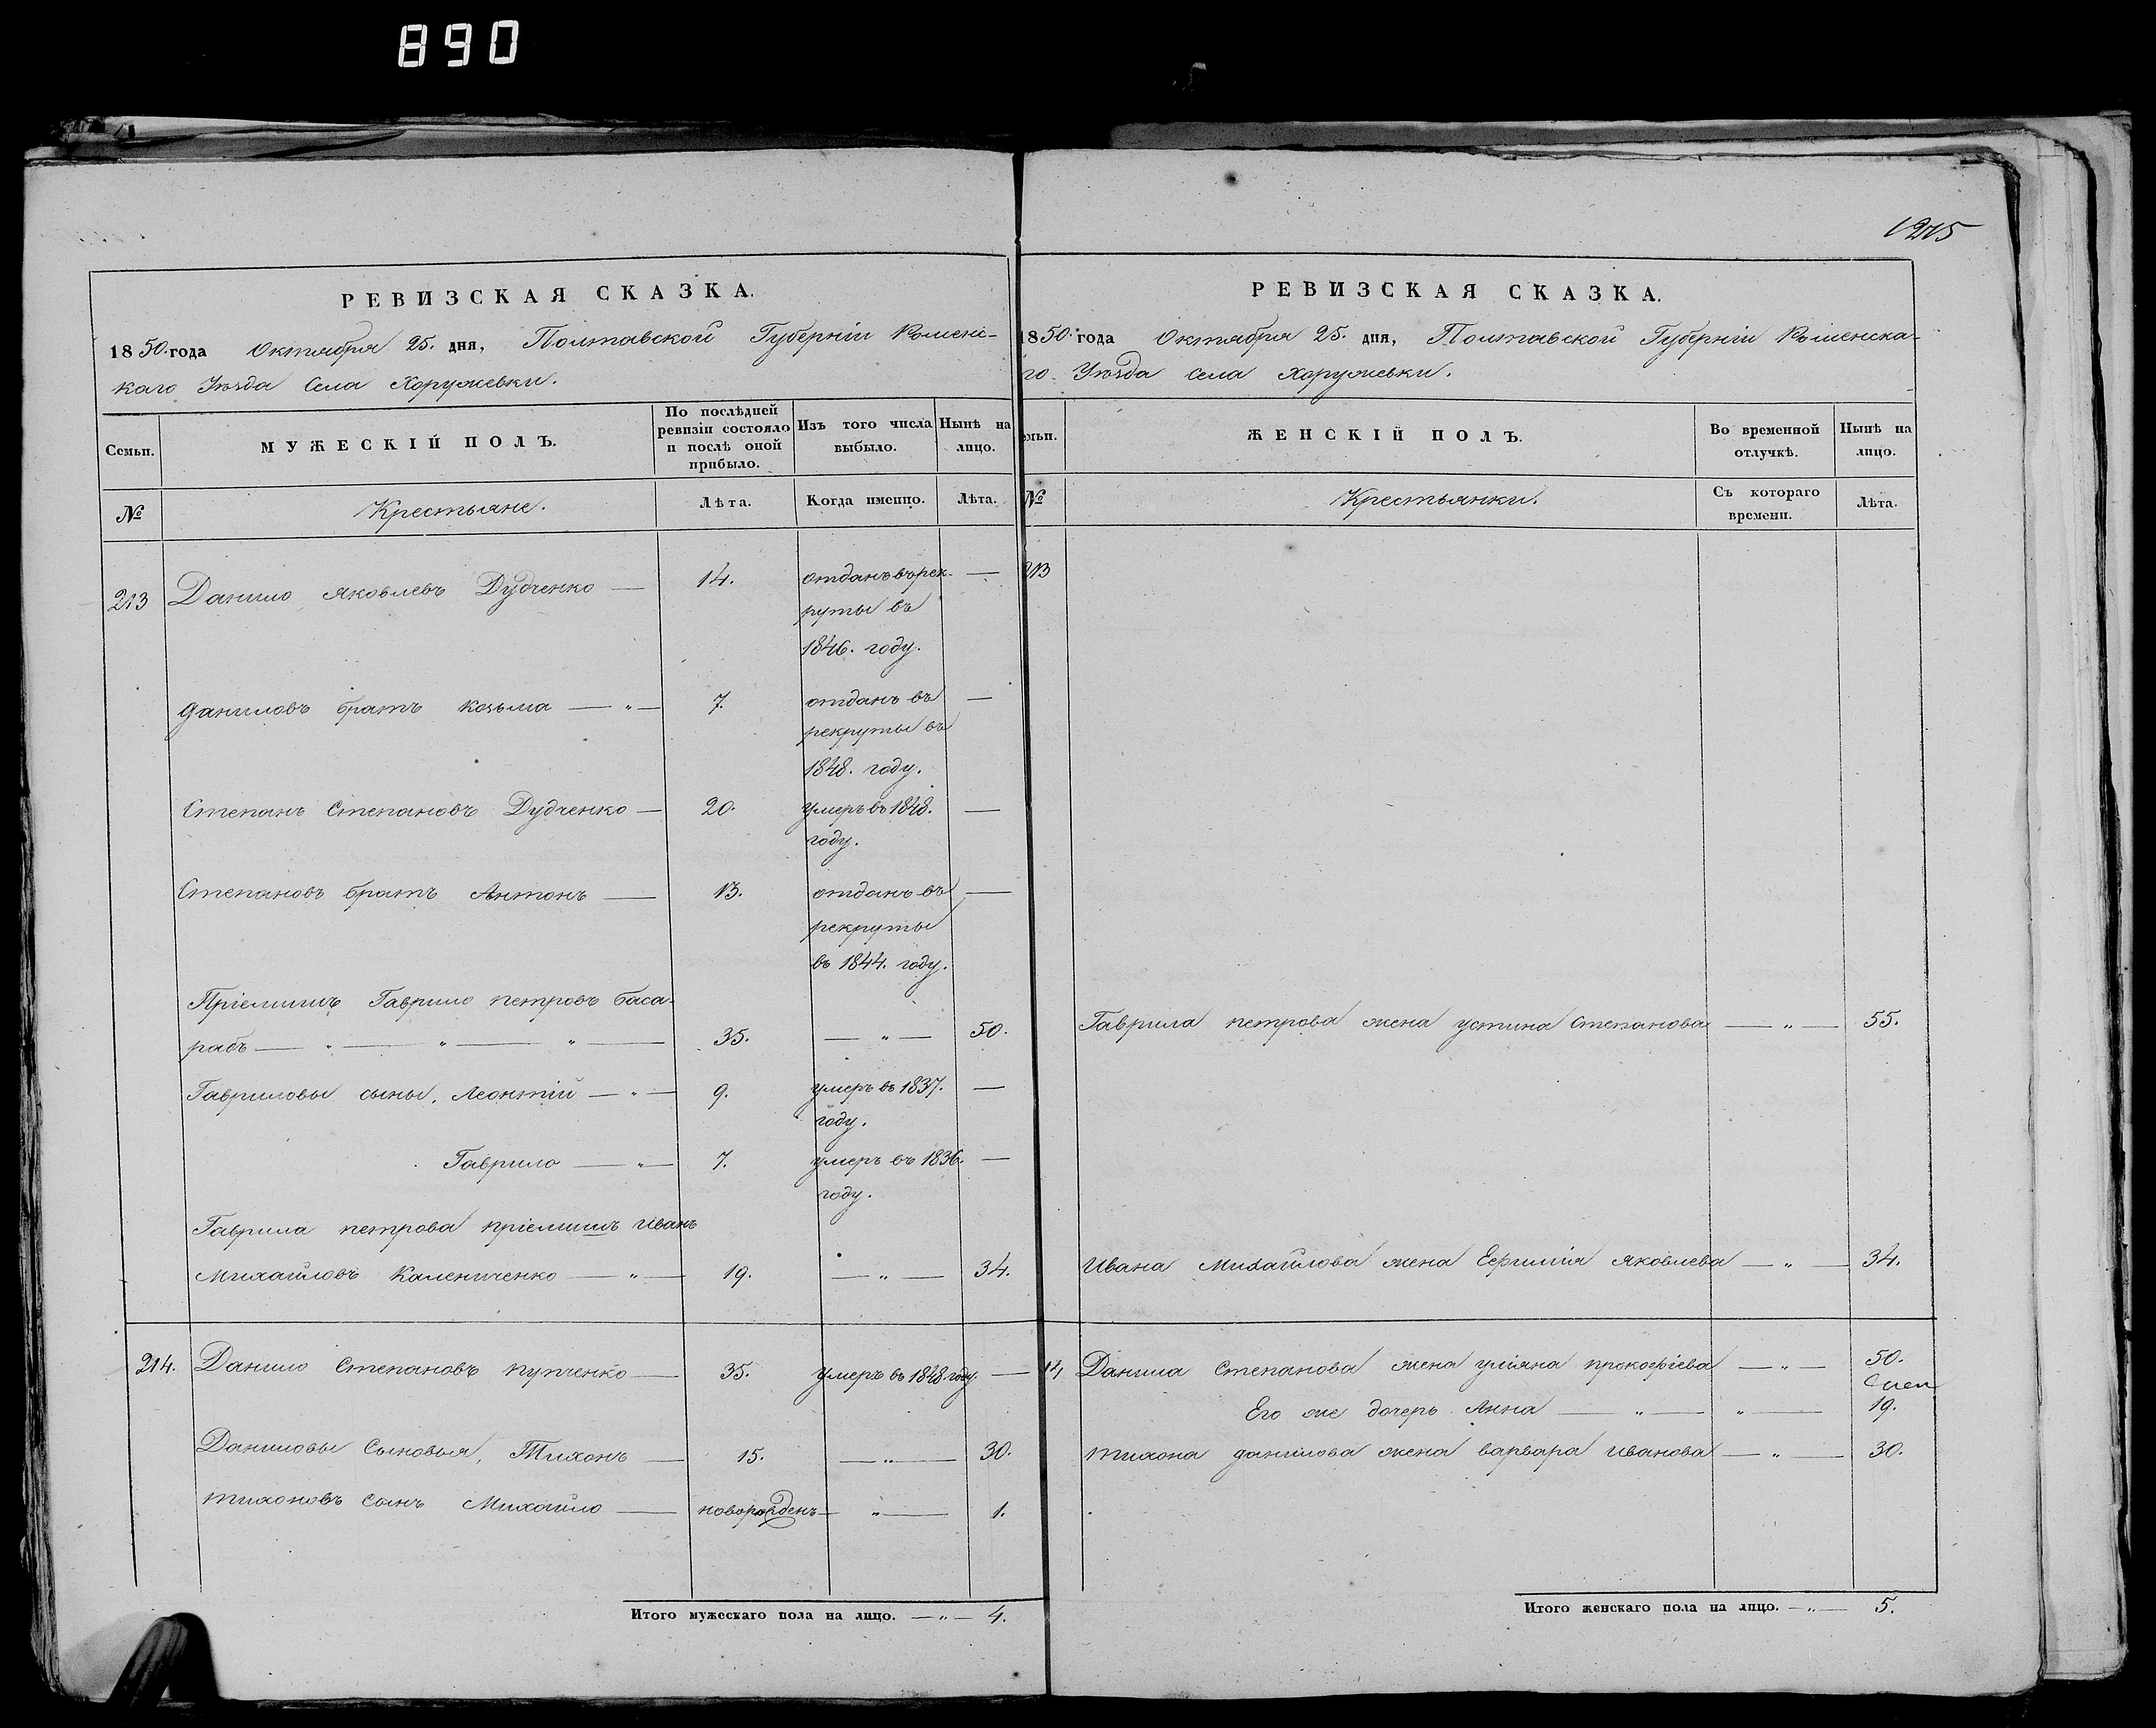 890
1215
РЕВИЗСКАЯ СКАЗКА.
1850. года Октября 25. дня, Полтавской Губерніи Роменс-
каго Уѣзда Села Хоружевки.
Семьи. МУЖЕСКІЙ ПОЛЪ. По послѣдней ревизіи состояло и послѣ оной прибыло. Изъ того числа выбыло. Нынѣ на лицо.
№ Крестьяне. Лѣта. Когда именно. Лѣта.
213 Данило Яковлевъ Дудченко — 14. отданъ въ рек- —
руты въ
1846. году.
Даниловъ братъ Козьма — " — 7. отданъ въ —
рекруты въ
1848. году.
Степанъ Степановъ Дудченко — 20. умеръ въ 1848. —
году.
Степановъ братъ Антонъ — 13. отданъ въ —
рекруты
въ 1844. году.
Пріемышъ Гаврило петровъ баса-
рабъ — " — " — " — 35. — " — 50.
Гавриловы сыны, Леонтій — " — 9. умеръ въ 1837. —
году.
Гаврило — " — 7. умеръ въ 1836. —
году.
Гаврила петрова пріемышъ Иванъ
Михайловъ Калениченко — " — 19. — " — 34.
214. Данило Степановъ купченко — 35. умеръ въ 1848 году. —
Даниловы Сыновья, Тихонъ — 15. — " — 30.
тихоновъ Сынъ Михайло — новорожденъ — " — 1.
Итого мужескаго пола на лицо. — " — 4.
РЕВИЗСКАЯ СКАЗКА.
1850. года Октября 25. дня, Полтавской Губерніи Роменска-
го Уѣзда Села Хоружевки.
емьи. ЖЕНСКІЙ ПОЛЪ. Во временной отлучкѣ. Нынѣ на лицо.
№ Крестьянки. Съ котораго времени. Лѣта.
213
Гаврила петрова жена устина Степанова — " — 55.
Ивана Михайлова жена Ефимія Яковлева — " — 34.
14 Данила Степанова жена уліяна прокофіева — " — 50.
Его же дочерь Анна — " — " — 19.
тихона данилова жена варвара Иванова — " — 30.
Итого женскаго пола на лицо. — " — 5.